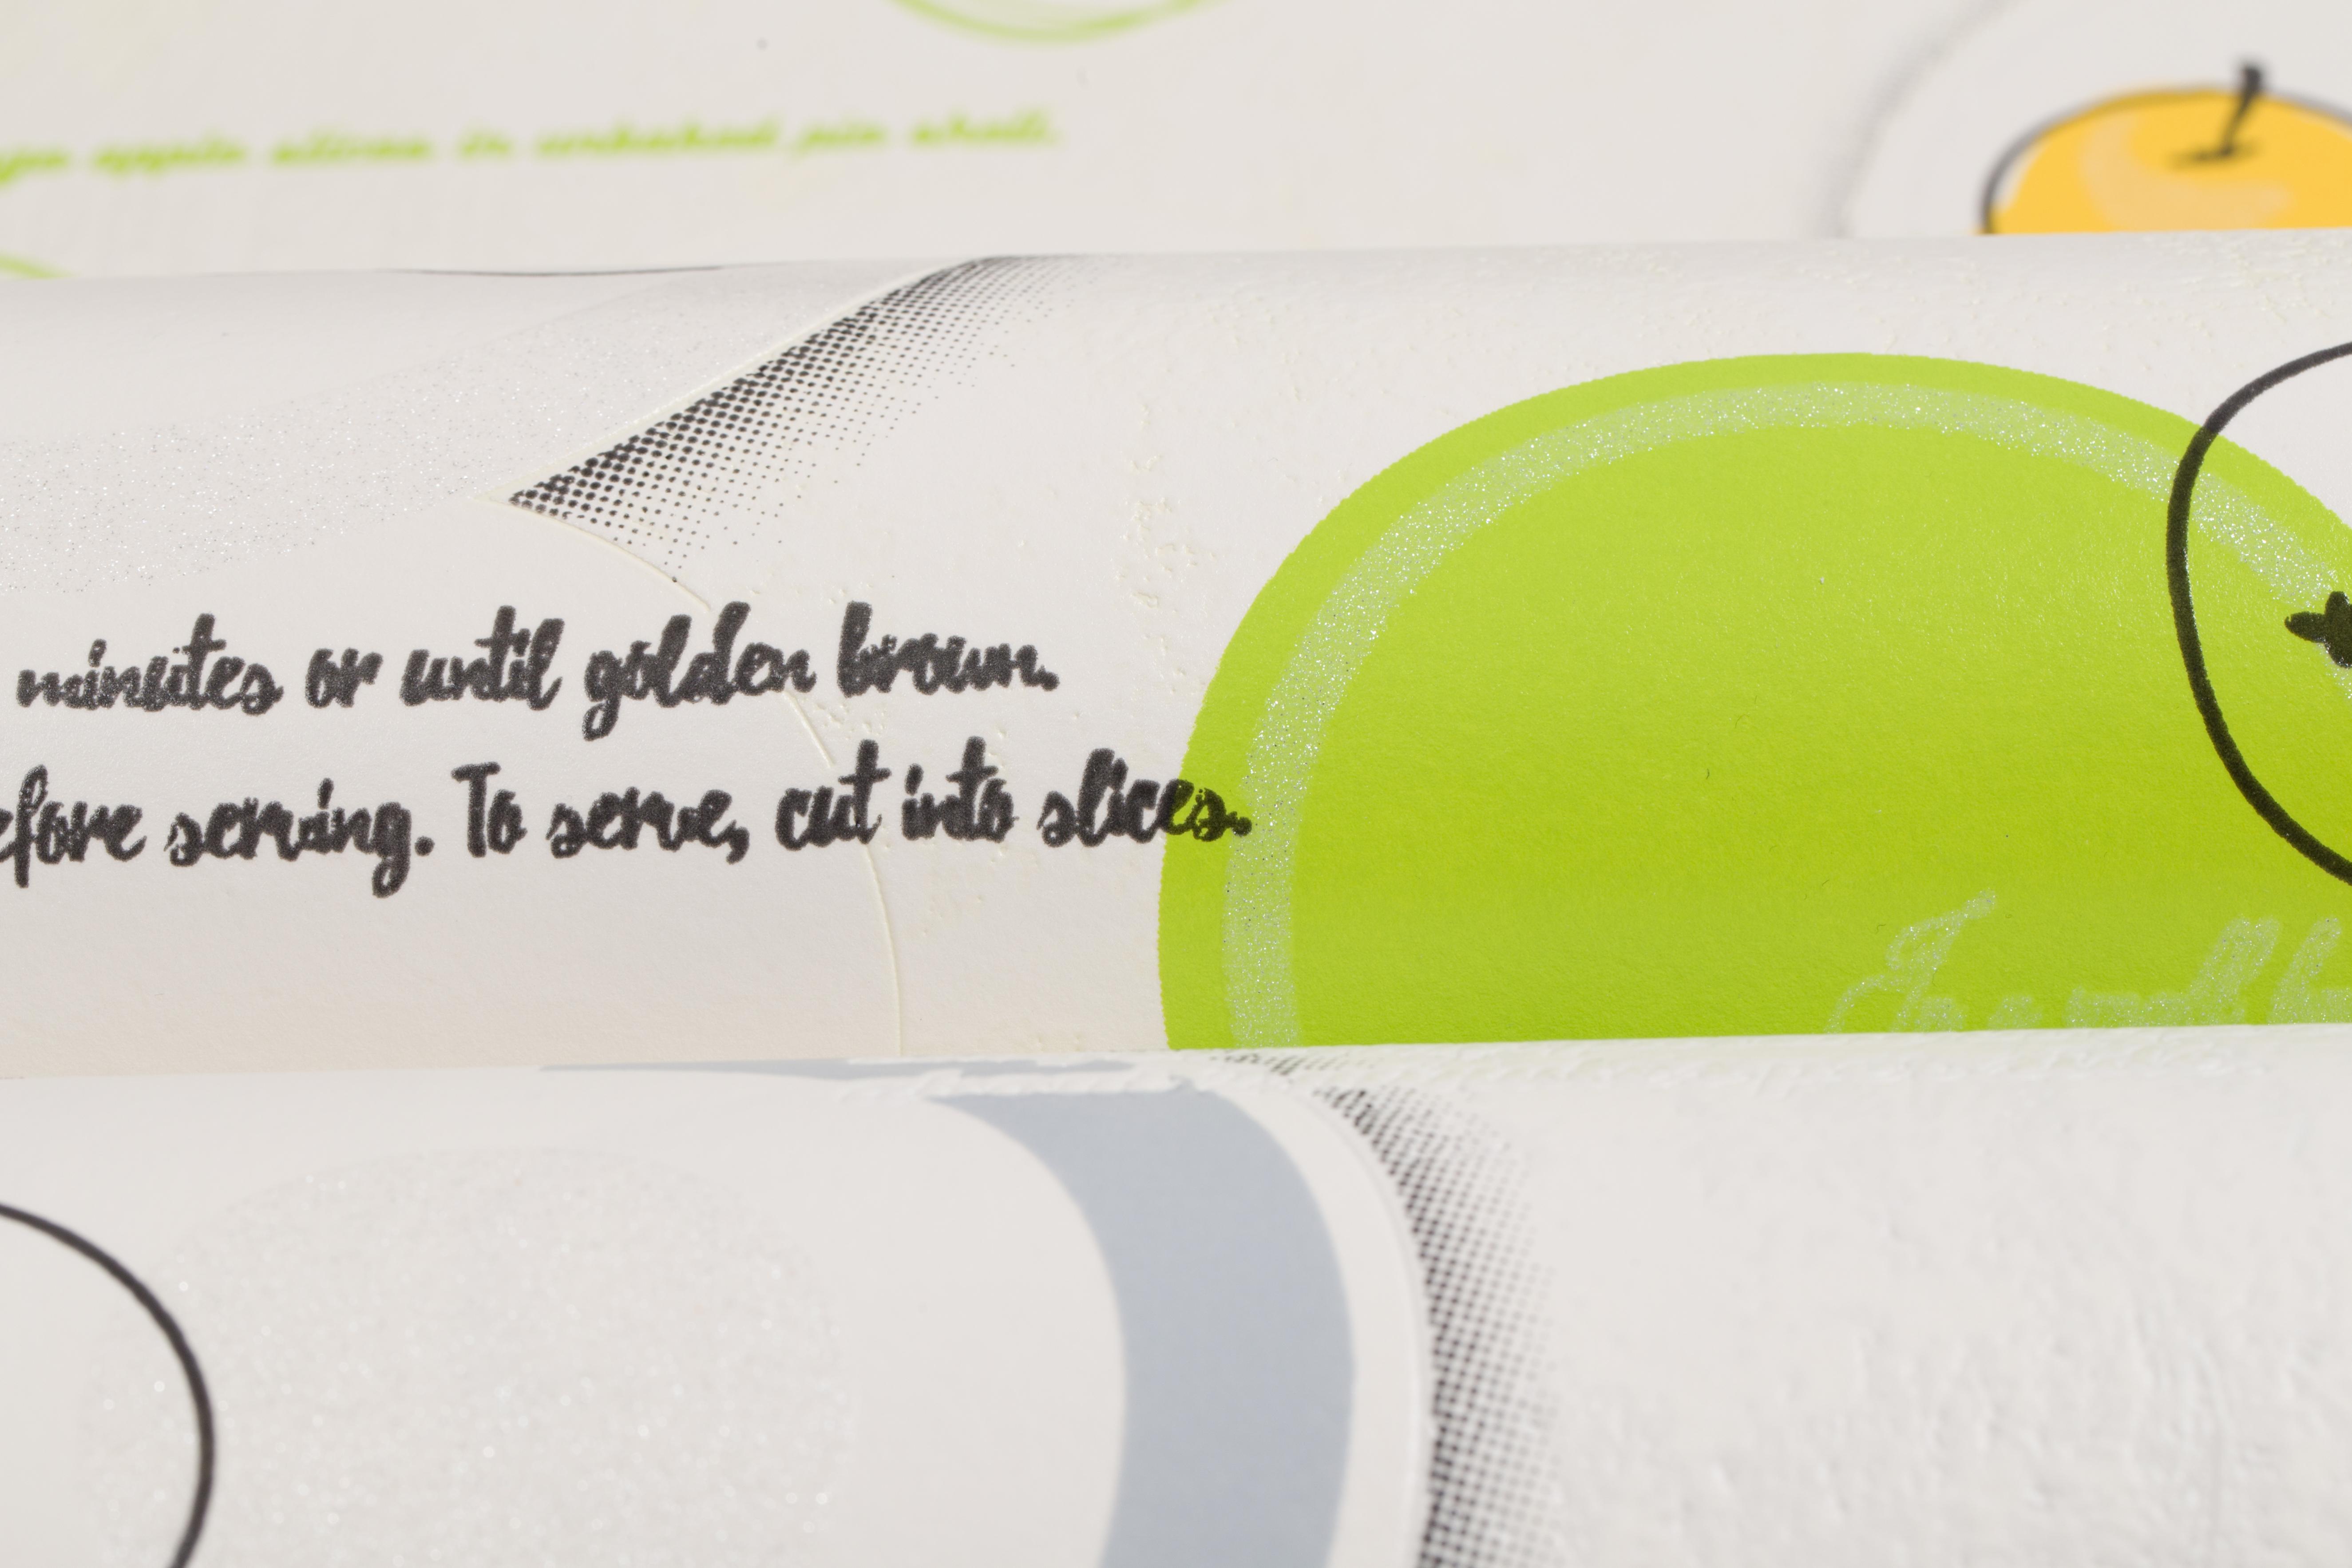 apple slices in unbaked pie shell.
minutes or until golden brown.
efore serving. To serve, cut into slices.
In a small b